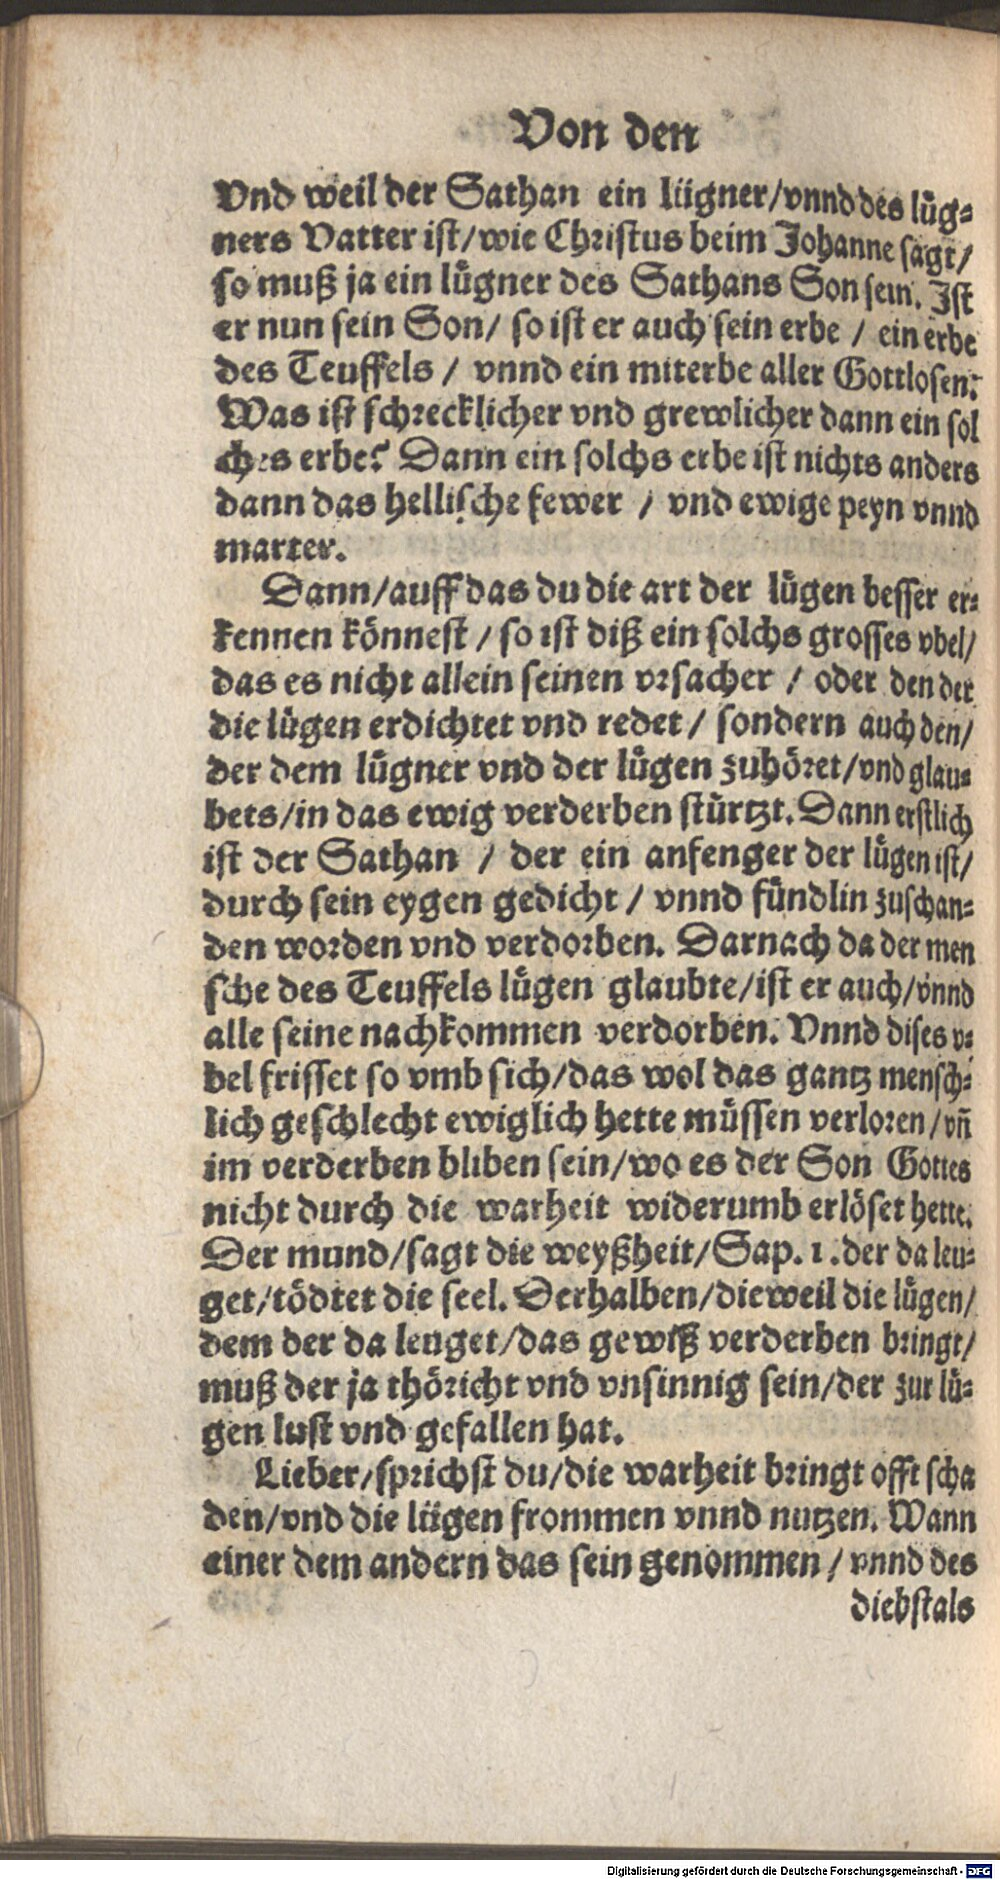 Von den
Vnd weil der Sathan ein lügner/vnnd des lüg⸗
ners Vatter ist/wie Christus beim Johanne sagt/
so muß ja ein lügner des Sathans Son sein. Ist
er nun sein Son/ so ist er auch sein erbe / ein erbe
des Teuffels / vnnd ein miterbe aller Gottlosen.
Was ist schrecklicher vnd grewlicher dann ein sol
ches erbe? Dann ein solchs erbe ist nichts anders
dann das hellische fewer / vnd ewige peyn vnnd
marter.
Dann/auff das du die art der lügen besser er⸗
kennen könnest / so ist diß ein solchs grosses vbel/
das es nicht allein seinen vrsacher / oder den der
die lügen erdichtet vnd redet / sondern auch den/
der dem lügner vnd der lügen zuhöret/vnd glau⸗
bets/in das ewig verderben stürtzt. Dann erstlich
ist der Sathan / der ein anfenger der lügen ist/
durch sein eygen gedicht / vnnd fündlin zuschan⸗
den worden vnd verdorben. Darnach da der men
sche des Teuffels lügen glaubte/ist er auch/vnnd
alle seine nachkommen verdorben. Vnnd dises v⸗
bel frisset so vmb sich/das wol das gantz mensch⸗
lich geschlecht ewiglich hette müssen verloren/vñ
im verderben bliben sein/wo es der Son Gottes
nicht durch die warheit widerumb erlöset hette.
Der mund/sagt die weyßheit/Sap. 1. der da leu⸗
get/tödtet die seel. Derhalben/dieweil die lügen/
dem der da leuget/das gewiß verderben bringt/
muß der ja thöricht vnd vnsinnig sein/der zur lü⸗
gen lust vnd gefallen hat.
Lieber/sprichst du/die warheit bringt offt scha
den/vnd die lügen frommen vnnd nutzen. Wann
einer dem andern das sein genommen / vnnd des
diebstals
Digitalisierung gefördert durch die Deutsche Forschungsgemeinschaft - DFG